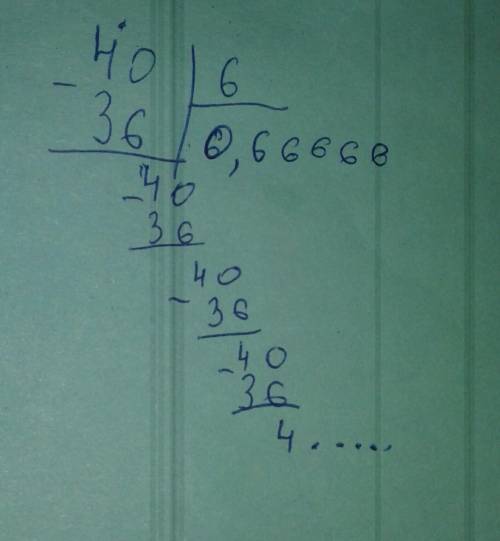 40 6
- 36 0,66668
- 40
36
- 40
36
- 40
36
4......